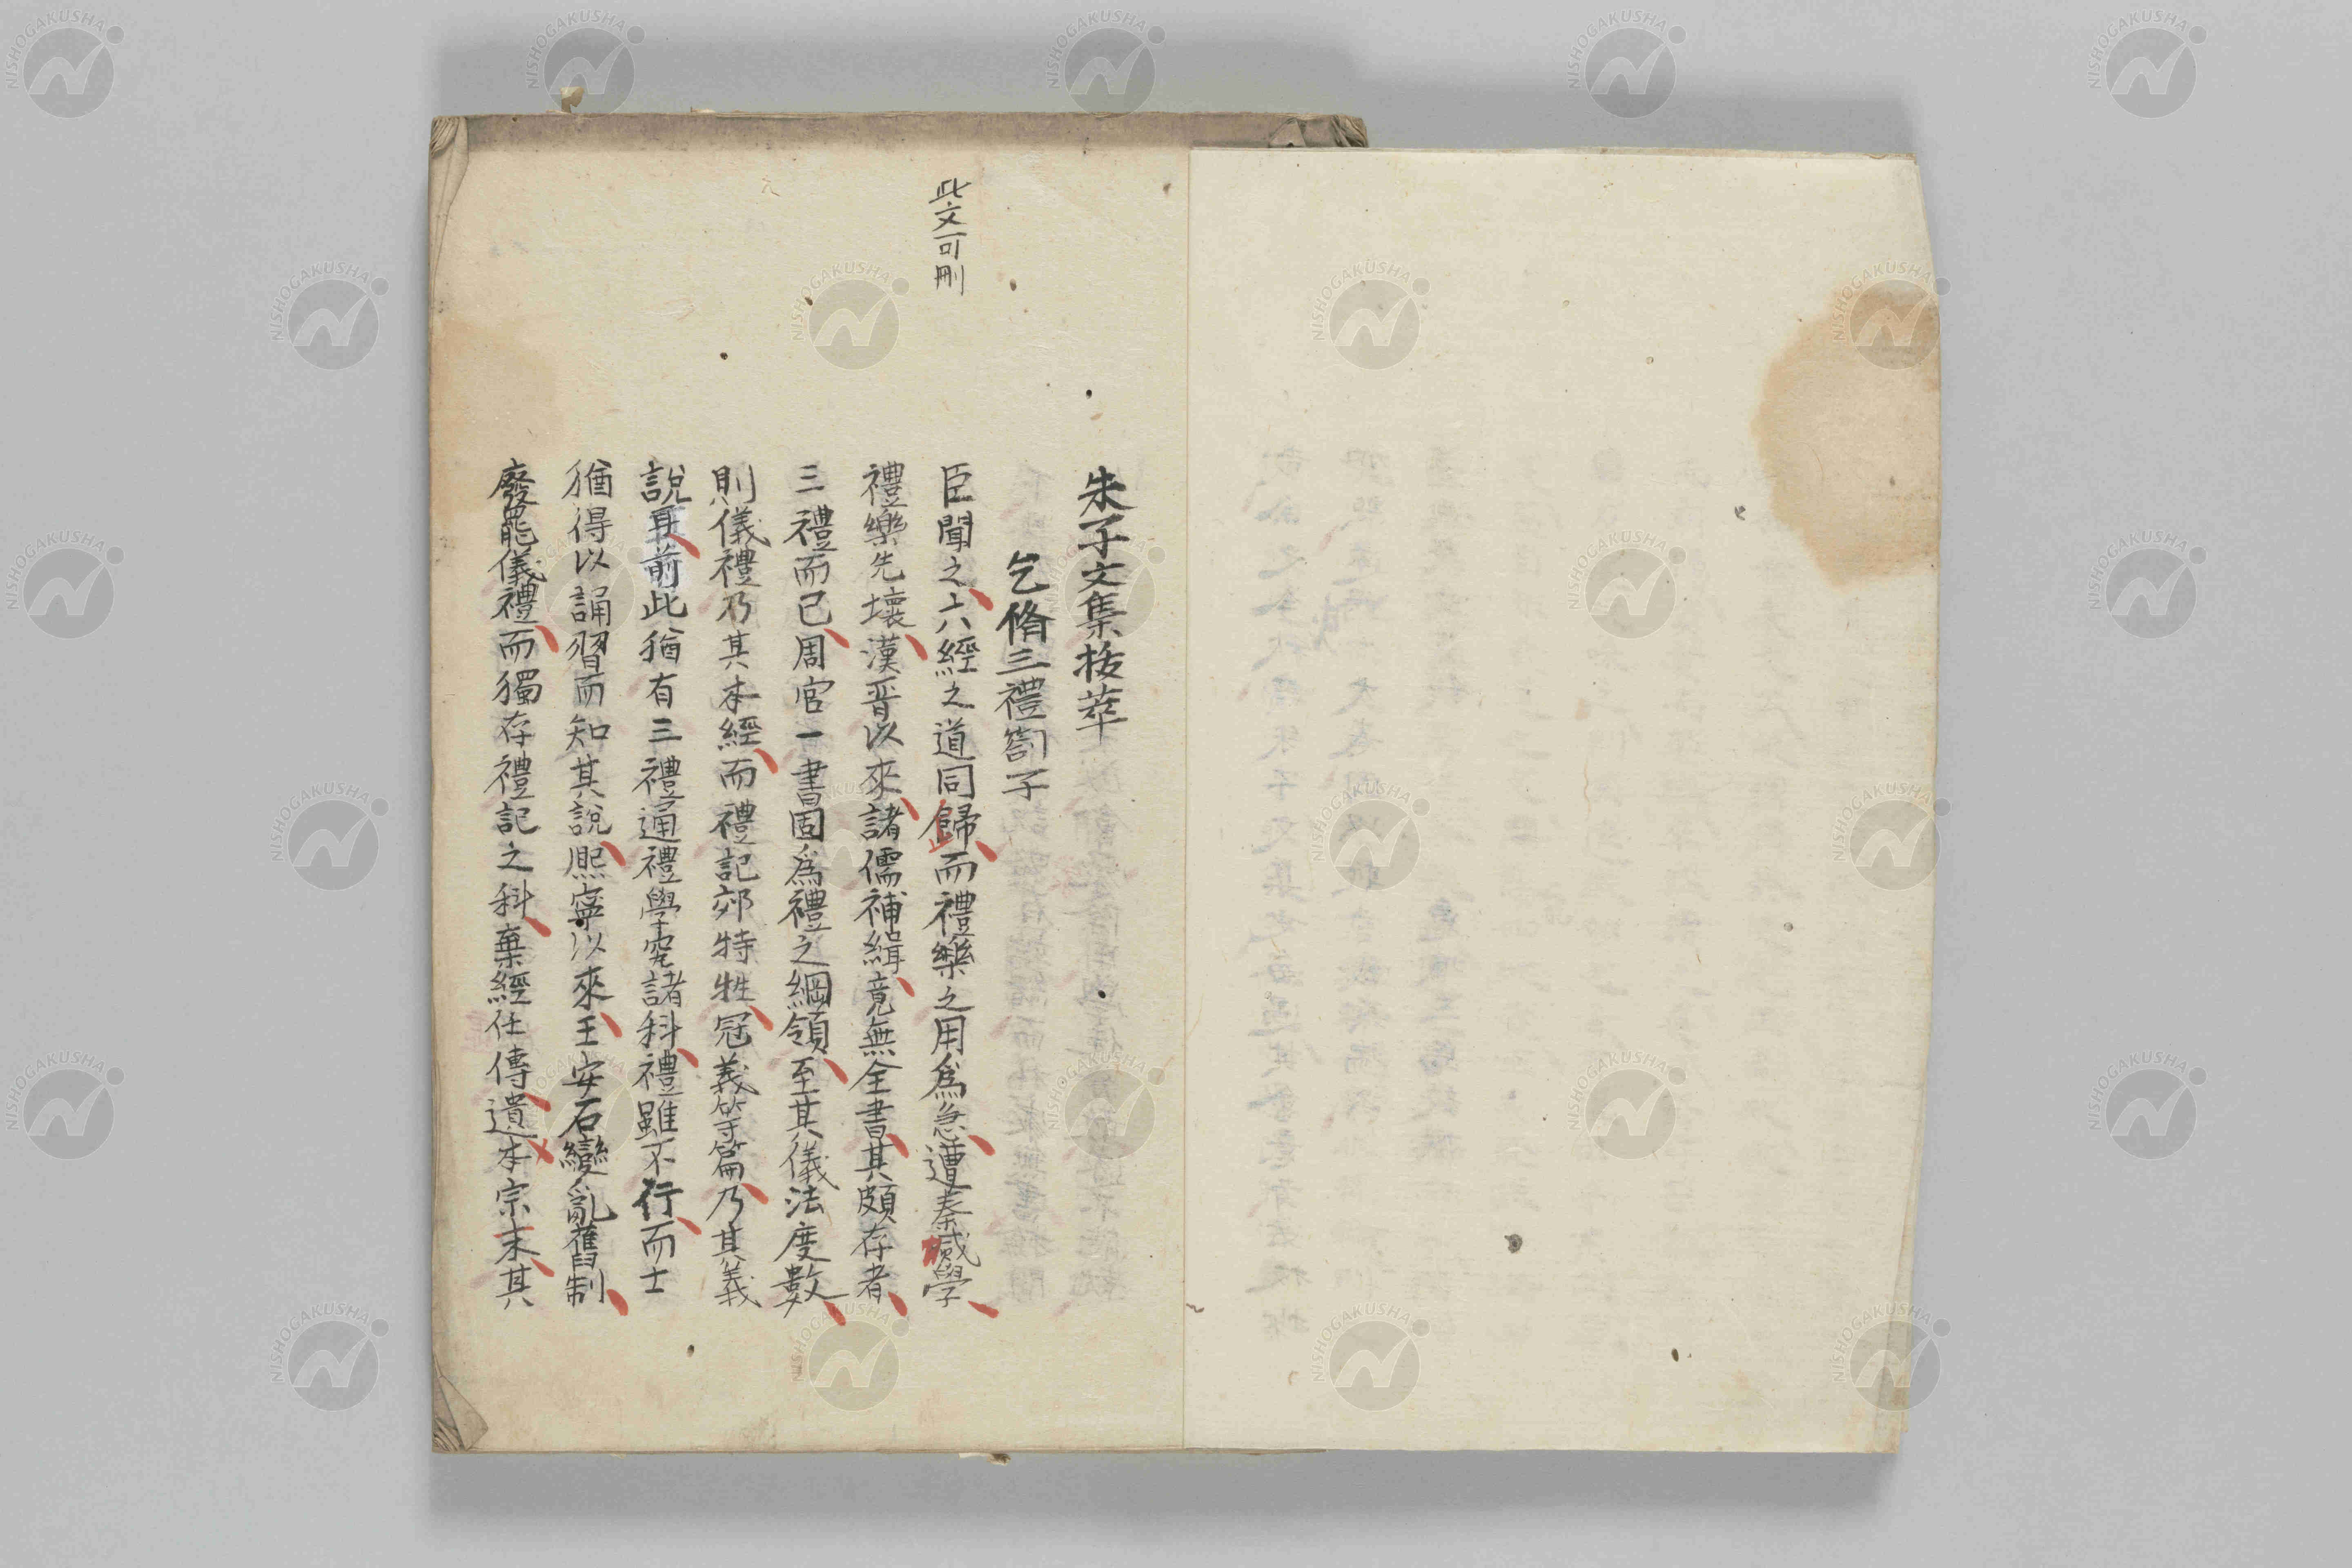 朱子文集拔萃
乞脩三禮劄子
此文可刪
臣聞之六經之道同歸而禮樂之用爲急遭秦滅學
禮樂先壞漢晉以來諸儒補緝竟無全書其頗存者
三禮而已周官一書固爲禮之綱領至其儀法度數
則儀禮乃其本經而禮記郊特牲冠義等篇乃其義
說耳前此猶有三禮通禮學究諸科禮雖不行而士
猶得以誦習而知其說熈寧以來王安石變亂舊制
廢罷儀禮而獨存禮記之科棄經任傳遺本宗末其
NISHOGAKUSHA